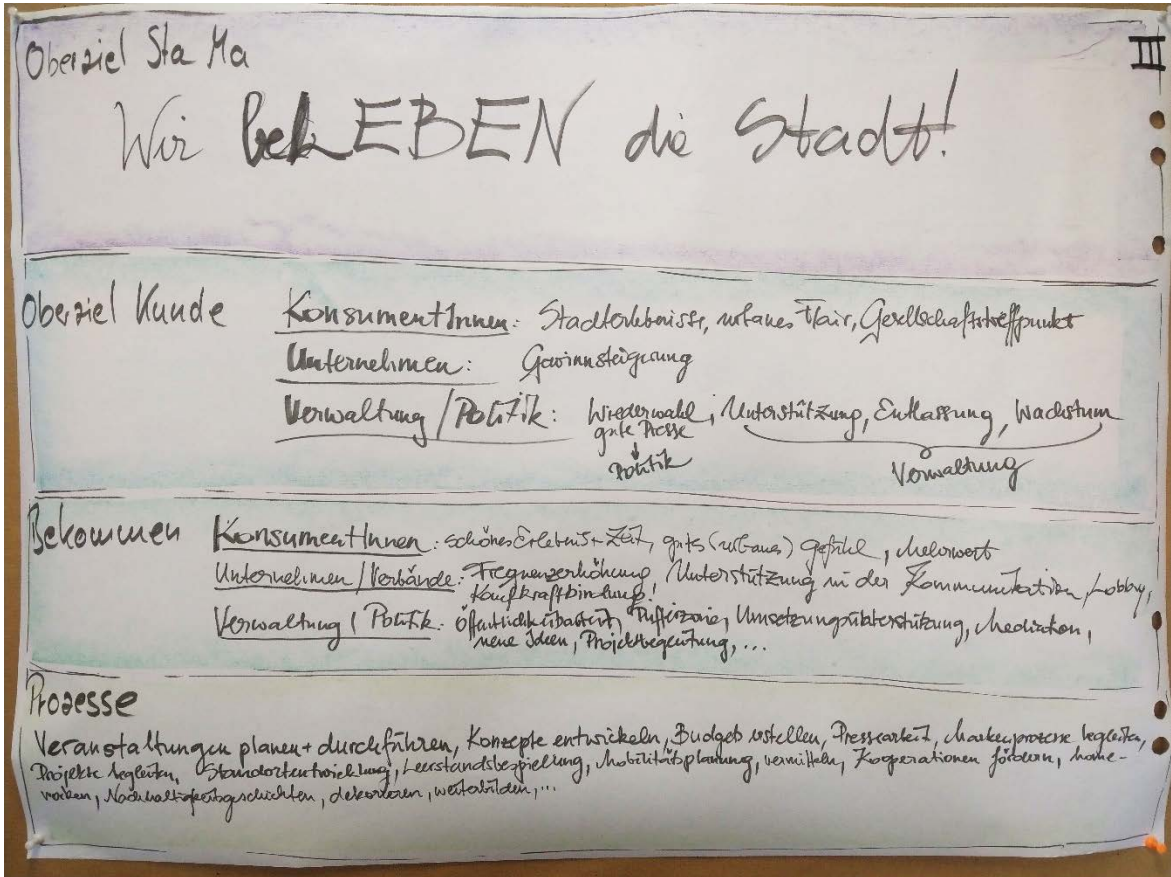 Oberziel Sta Ma
III
Wir beLEBEN die Stadt!
Oberziel Kunde
KonsumentInnen: Stadterlebnisse, urbanes Flair, Gesellschaftstreffpunkt
Unternehmen: Gewinnsteigerung
Verwaltung / Politik: Wiederwahl, Unterstützung, Entlassung, Wachstum
gute Presse
Politik
Verwaltung
Bekommen
KonsumentInnen: schönes Erlebnis + Zeit, gutes (urbanes) gefühl, Mehrwert
Unternehmen / Verbände: Frequenzerhöhung, Unterstützung in der Kommunikation, Lobby,
Kaufkraftbindung!
Verwaltung / Politik: Pufferzone, Umsetzungsunterstützung, Mediation,
neue Ideen, Projektbegleitung, ...
Prozesse
Veranstaltungen planen + durchführen, Konzepte entwickeln, Budget erstellen, Pressearbeit, Markenprozesse begleiten,
Projekte begleiten, Standortentwicklung, Leerstandsbespielung, Mobilitätsplanung, vermitteln, Kooperationen fördern,
dekorieren, weiterbilden, ...